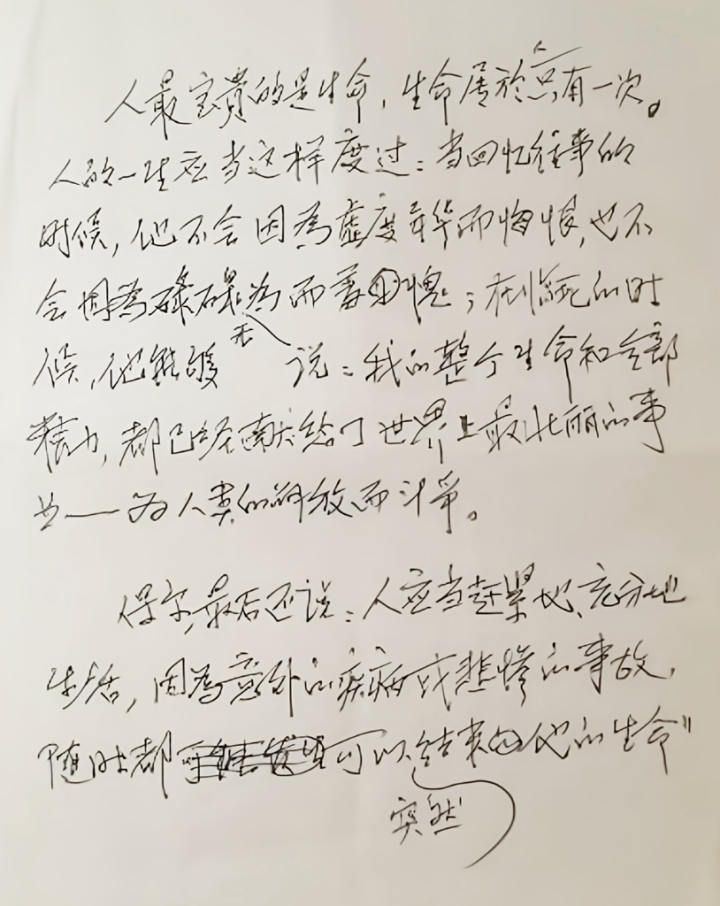 人最宝贵的是生命，生命属於人只有一次。
人的一生应当这样度过：当回忆往事的
时候，他不会因為虚度年华而悔恨，也不
会因為碌碌无為而羞愧；在临死的时
候，他能够说：我的整个生命和全部
精力，都已经献给了世界上最壮丽的事
业——为人类的解放而斗争。
保尔最后还说：人应当赶紧地、充分地
生活，因為意外的疾病或悲惨的事故，
随时都可以突然结束他的生命"